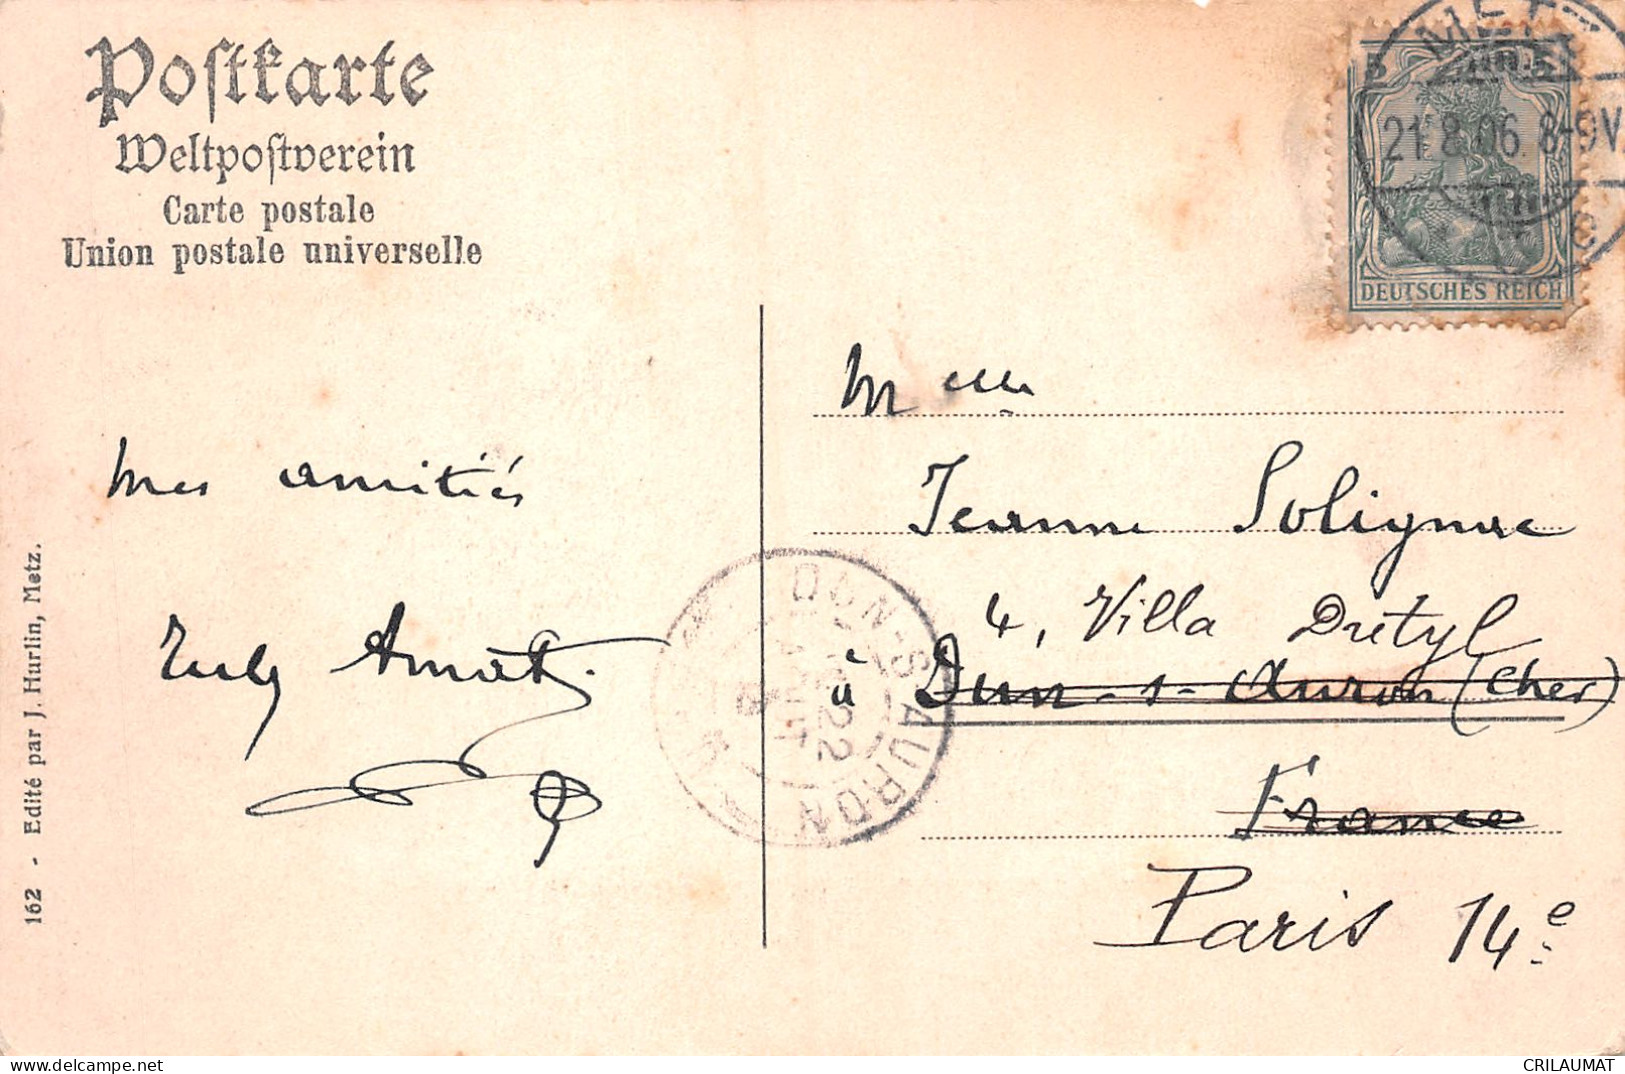 Postkarte
Weltpostverein
Carte postale
Union postale universelle
METZ
21.8.06. 8-9V.
DEUTSCHES REICH
Melle
Mes amitiés
Jeanne Solignac
4, Villa Dretyl
à Dun-s-Auron (Cher)
DUN-S-AURON
22
AOUT
Amat
France
Paris 14e
162 - Edité par J. Hurlin, Metz.
CRILAUMAT